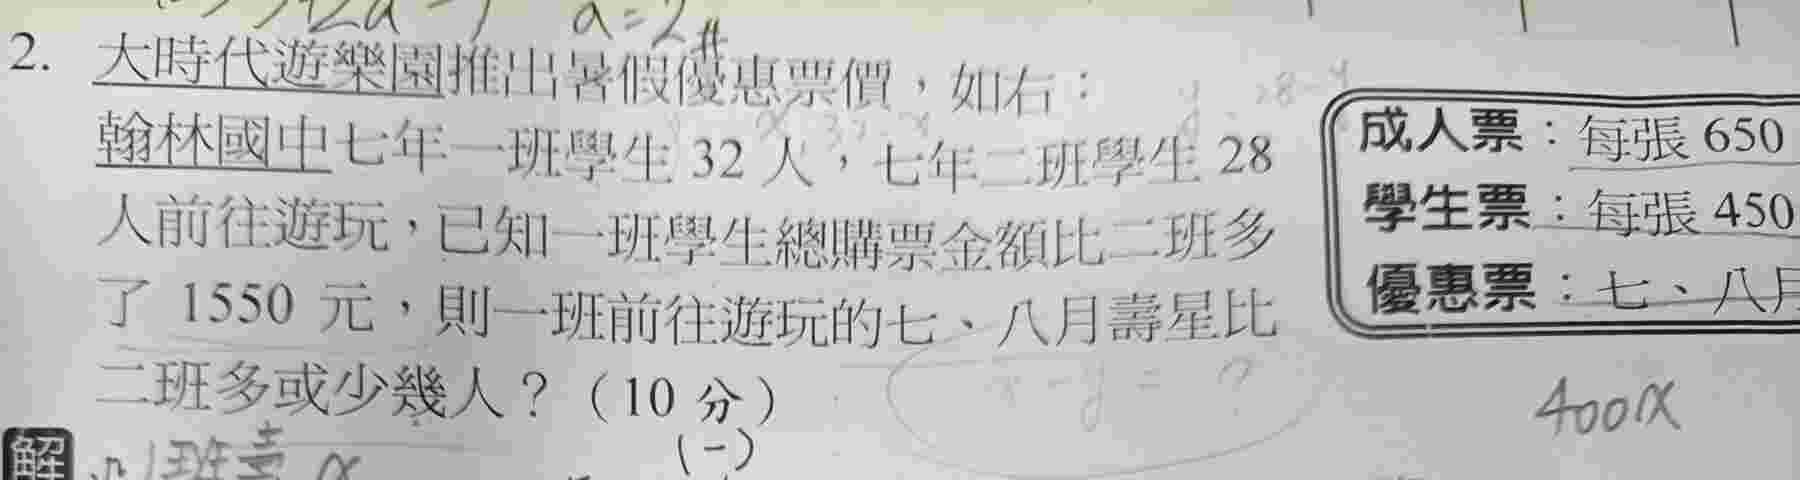 a=2#
2. 大時代遊樂園推出暑假優惠票價，如右：
翰林國中七年一班學生 32 人，七年二班學生 28
人前往遊玩，已知一班學生總購票金額比二班多
了 1550 元，則一班前往遊玩的七、八月壽星比
二班多或少幾人？（10 分）
成人票：每張 650
學生票：每張 450
優惠票：七、八月
x-y= ?
400x
(-)
解 1班壽 x